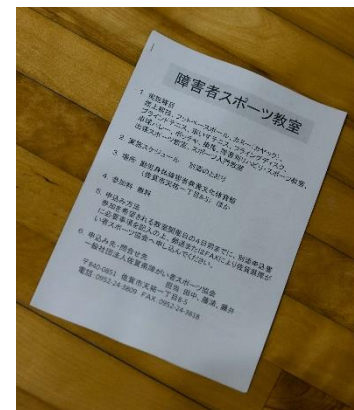 障害者スポーツ教室
1 実施種目
陸上競技、フットベースボール、カヌー・カヤック、
ブラインドテニス、車いすテニス、フライングディスク、
卓球バレー、ボッチャ、スポーツ教室、
出張スポーツ教室、スポーツ入門教室
2 実施スケジュール 別添のとおり
3 場所 勤労身体障害者教養文化体育館
(佐賀市天祐一丁目8-5) ほか
4 参加料 無料
5 申込み方法
参加を希望される教室開催日の4日前までに、別添申込書
に必要事項を記入の上、郵送またはFAXにより佐賀県障が
い者スポーツ協会へ申し込んでください。
6 申込み先・問合せ先
一般社団法人佐賀県障がい者スポーツ協会
担当 田中、藤井
〒840-0851 佐賀市天祐一丁目8-5
電話：0952-24-3809 FAX：0952-24-9818